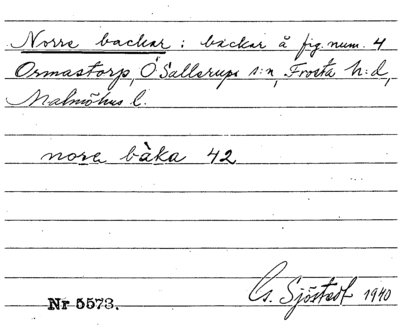 Norre backar : backar å fig. num. 4
Ormastorp, Ö Sallerups s:n, Frosta h:d,
Malmöhus l.
nora bàka 42
Nr 5573.
G. Sjöstedt 1940